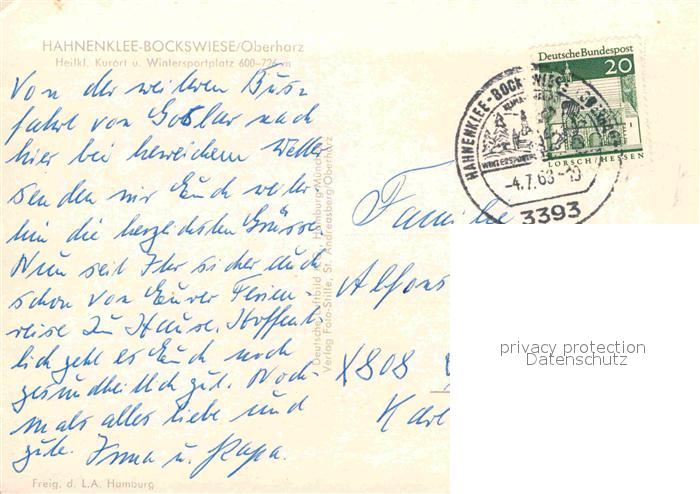 HAHNENKLEE-BOCKSWIESE/Oberharz
Heilkl. Kurort u. Wintersportplatz 600–726 m
Von der weiteren Bus-
fahrt von Goslar nach
hier bei herrlichem Wetter
senden wir Euch weiter
hin die herzlichsten Grüsse.
Nun seit Ihr sicher auch
schon von Eurer Ferien-
reise zu Hause. Hoffent-
lich geht es Euch noch
gesundheitlich gut. Noch-
mals alles liebe und
gute. Irma u. Papa.
Freig. d. L.A. Hamburg
Deutsche Luftbild Hamburg/München
Verlag Foto-Stille, St. Andreasberg/Oberharz
Deutsche Bundespost
20
LORSCH/HESSEN
HAHNENKLEE-BOCKSWIESE
WINTERSPORT
-4.7.68-10
3393
Familie
Alfons
X808
Karl
privacy protection
Datenschutz